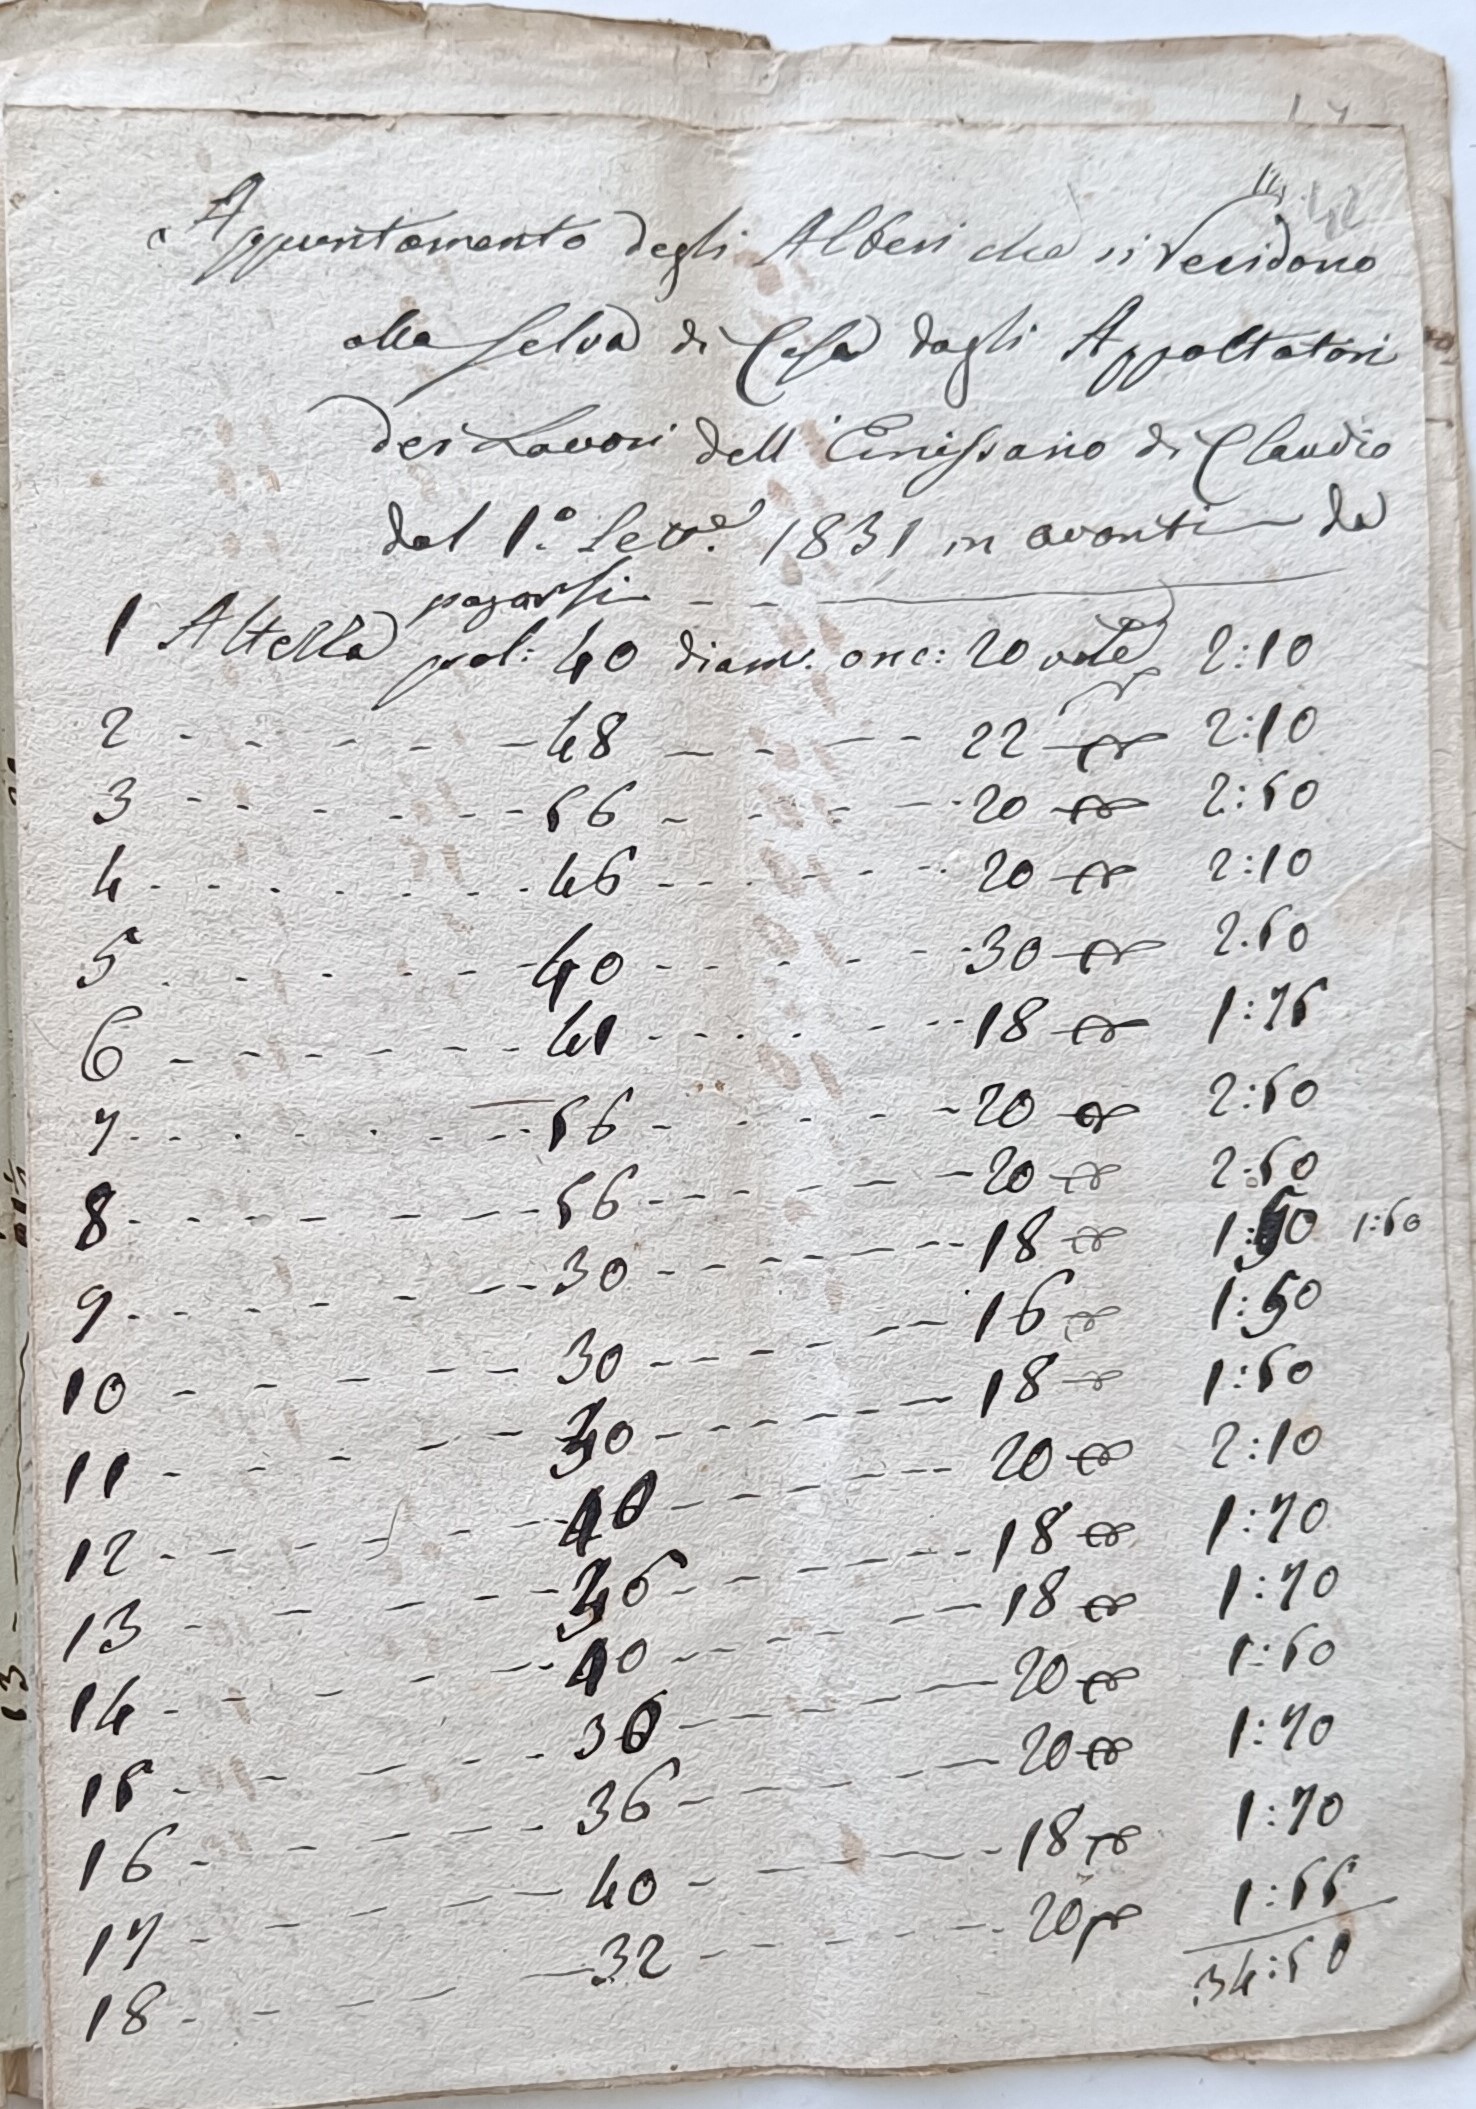 Appuntamento degli Alberi che si recidono
alla Selva di Cesa dagli Appaltatori
dei Lavori dell'Emissario di Claudio
dal 1.° 1831 in avanti da
pagarsi
1 Altezza pal: 40 diam. onc: 20 2:10
2 - - - - - - 48 - - - - 22 2:10
3 - - - - - - 56 - - - - 20 2:50
4 - - - - - - 46 - - - - 20 2:10
5 - - - - - - 40 - - - - 30 2.50
6 - - - - - - 41 - - - - 18 1:75
7 - - - - - - 56 - - - - 20 2:50
8 - - - - - - 56 - - - - 20 2:50
9 - - - - - - 30 - - - - 18 1:50 1:50
10 - - - - - - 30 - - - - 16 1:50
11 - - - - - - 30 - - - - 18 1:50
12 - - - - - - 40 - - - - 20 2:10
13 - - - - - - 36 - - - - 18 1:70
14 - - - - - - 40 - - - - 18 1:70
15 - - - - - - 36 - - - - 20 1:50
16 - - - - - - 36 - - - - 20 1:70
17 - - - - - - 40 - - - - 18 1:70
18 - - - - - - 32 - - - - 20 1:55
34:50